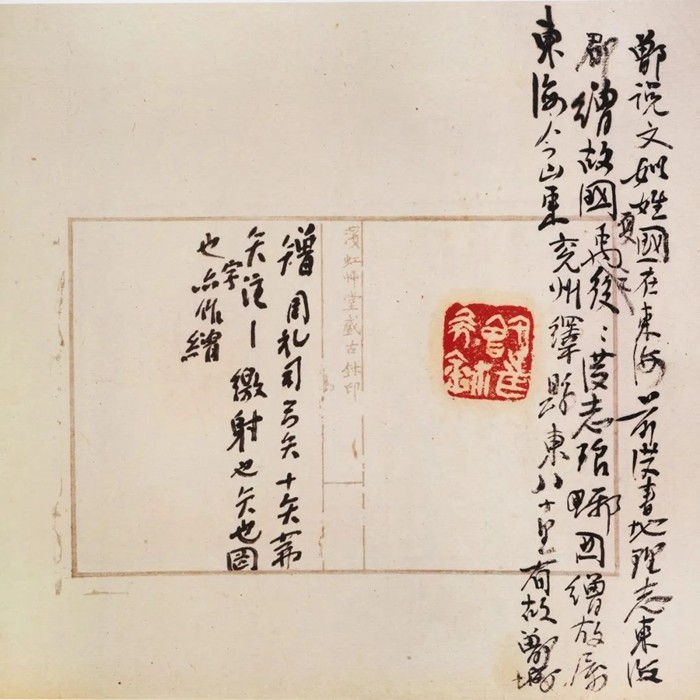 鄫说文姒姓國在東海前漢書地理志東海
郡繒故國禹後:漢志琅邪國繒故屬
夏
東海今山東兖州繹縣東八十里有故鄫城
濱虹艸堂藏古鉨印
矰周礼司弓矢十矢茀
矢注丨繳射也矢也圖
字
也亦作繒